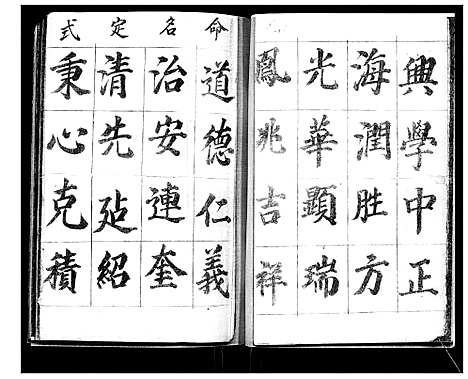 興學中正
海潤胜方
光華顯瑞
鳳兆吉祥
命名定式
道德仁義
治安連奎
清先延紹
秉心克積